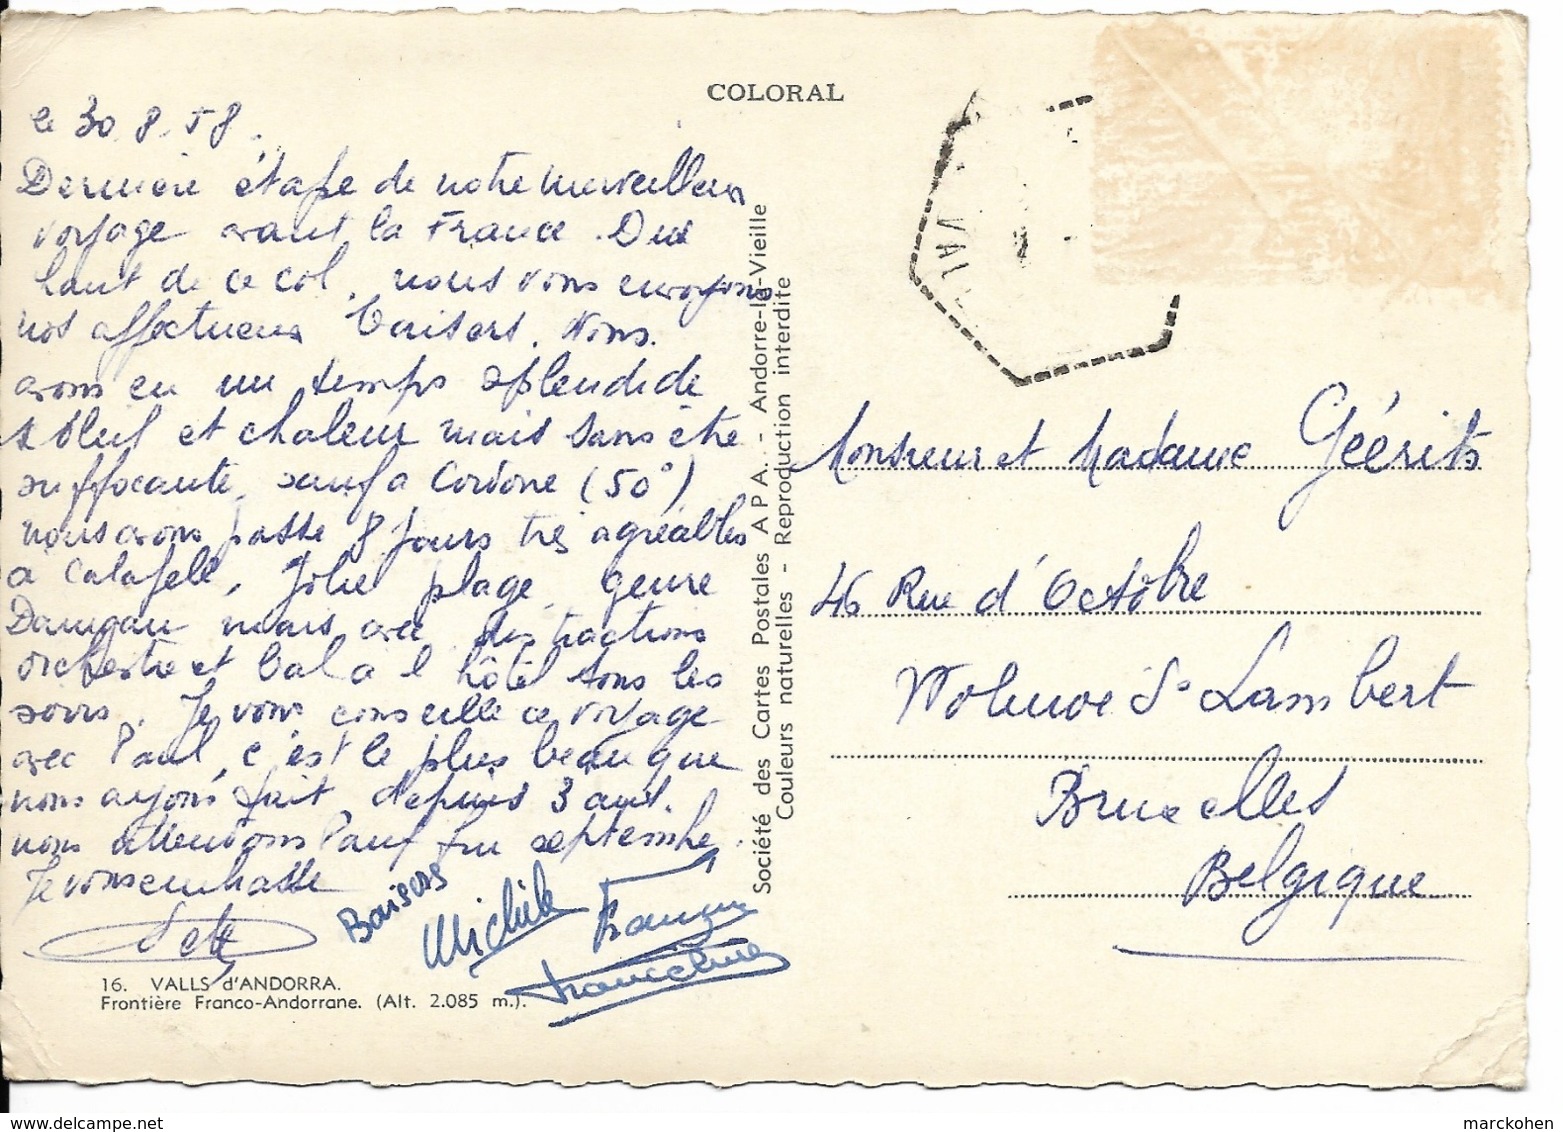 COLORAL
le 30.8.58.
Dernière étape de notre merveilleux
voyage avant la France. Du
haut de ce col, nous vous envoyons
nos affectueux baisers. Nous
avons eu un temps splendide
soleil et chaleur mais sans être
suffocante, sauf a Cordone (50°)
nous avons passé 8 jours très agréables
a Calafell, Jolie plage, genre
Damgan mais avec distractions
orchestre et bal a l'hôtel tous les
soirs. Je vous conseille ce voyage
avec Paul, c'est le plus beau que
nous ayons fait depuis 3 ans.
nous attendons Paul fin septembre.
Je vous embrasse
Baisers
Michèle
Francine
16. VALLS d'ANDORRA.
Frontière Franco-Andorrane. (Alt. 2.085 m.).
Société des Cartes Postales A P A. - Andorre-la-Vieille
Couleurs naturelles - Reproduction interdite
VAL
Monsieur et Madame Géérits
46 Rue d'Octobre
Woluwe St Lambert
Bruxelles
Belgique
marckohen